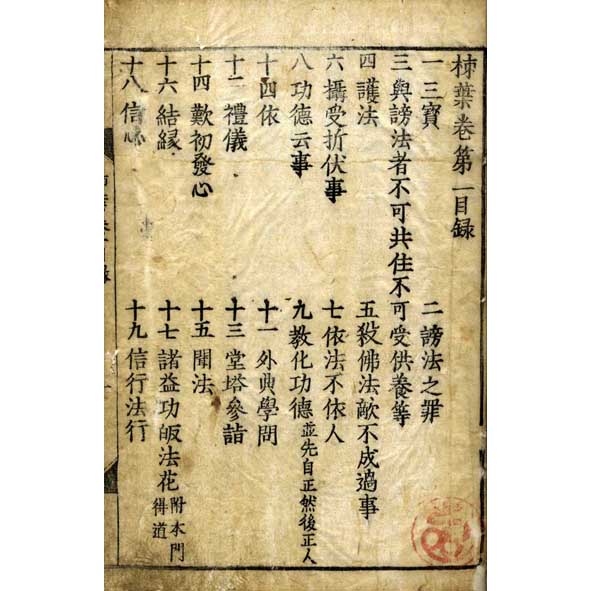 棟葉卷第一目録
一三寳　二謗法之罪
三與謗法者不可共住不可受供養等
四護法　五殺佛法敵不成過事
六攝受折伏事　七依法不依人
八功德云事　九教化功德並先自正然後正人
十四依　十一外典學問
十二禮儀　十三堂塔參詣
十四歎初發心　十五聞法
十六結縁　十七諸益功皈法花附本門得道
十八信心　十九信行法行